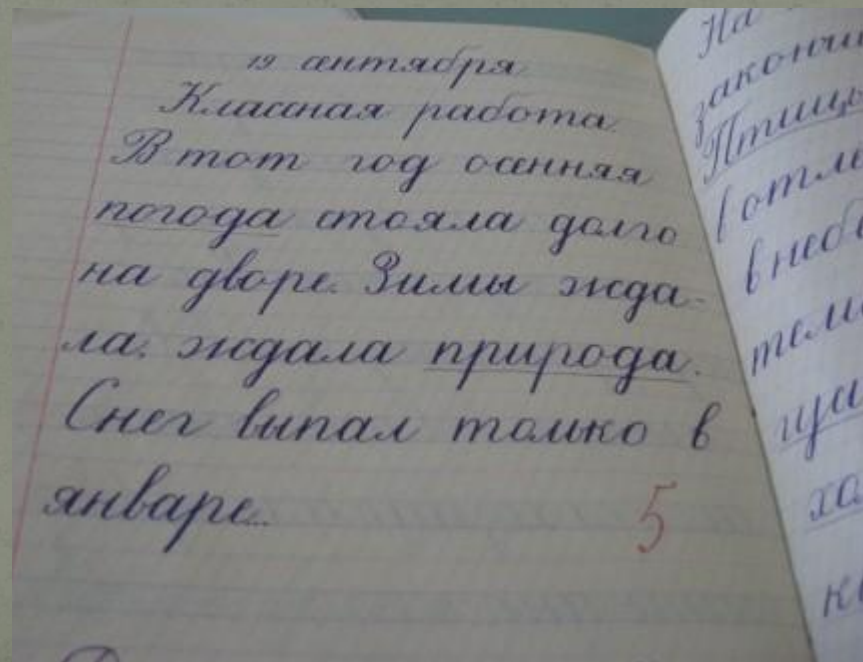 19 сентября
Классная работа.
В тот год осенняя
погода стояла долго
на дворе. Зимы жда-
ла, ждала природа.
Снег выпал только в
январе...
5
На
закончи
Птицы
в отле
в небе
теми
ща
ха